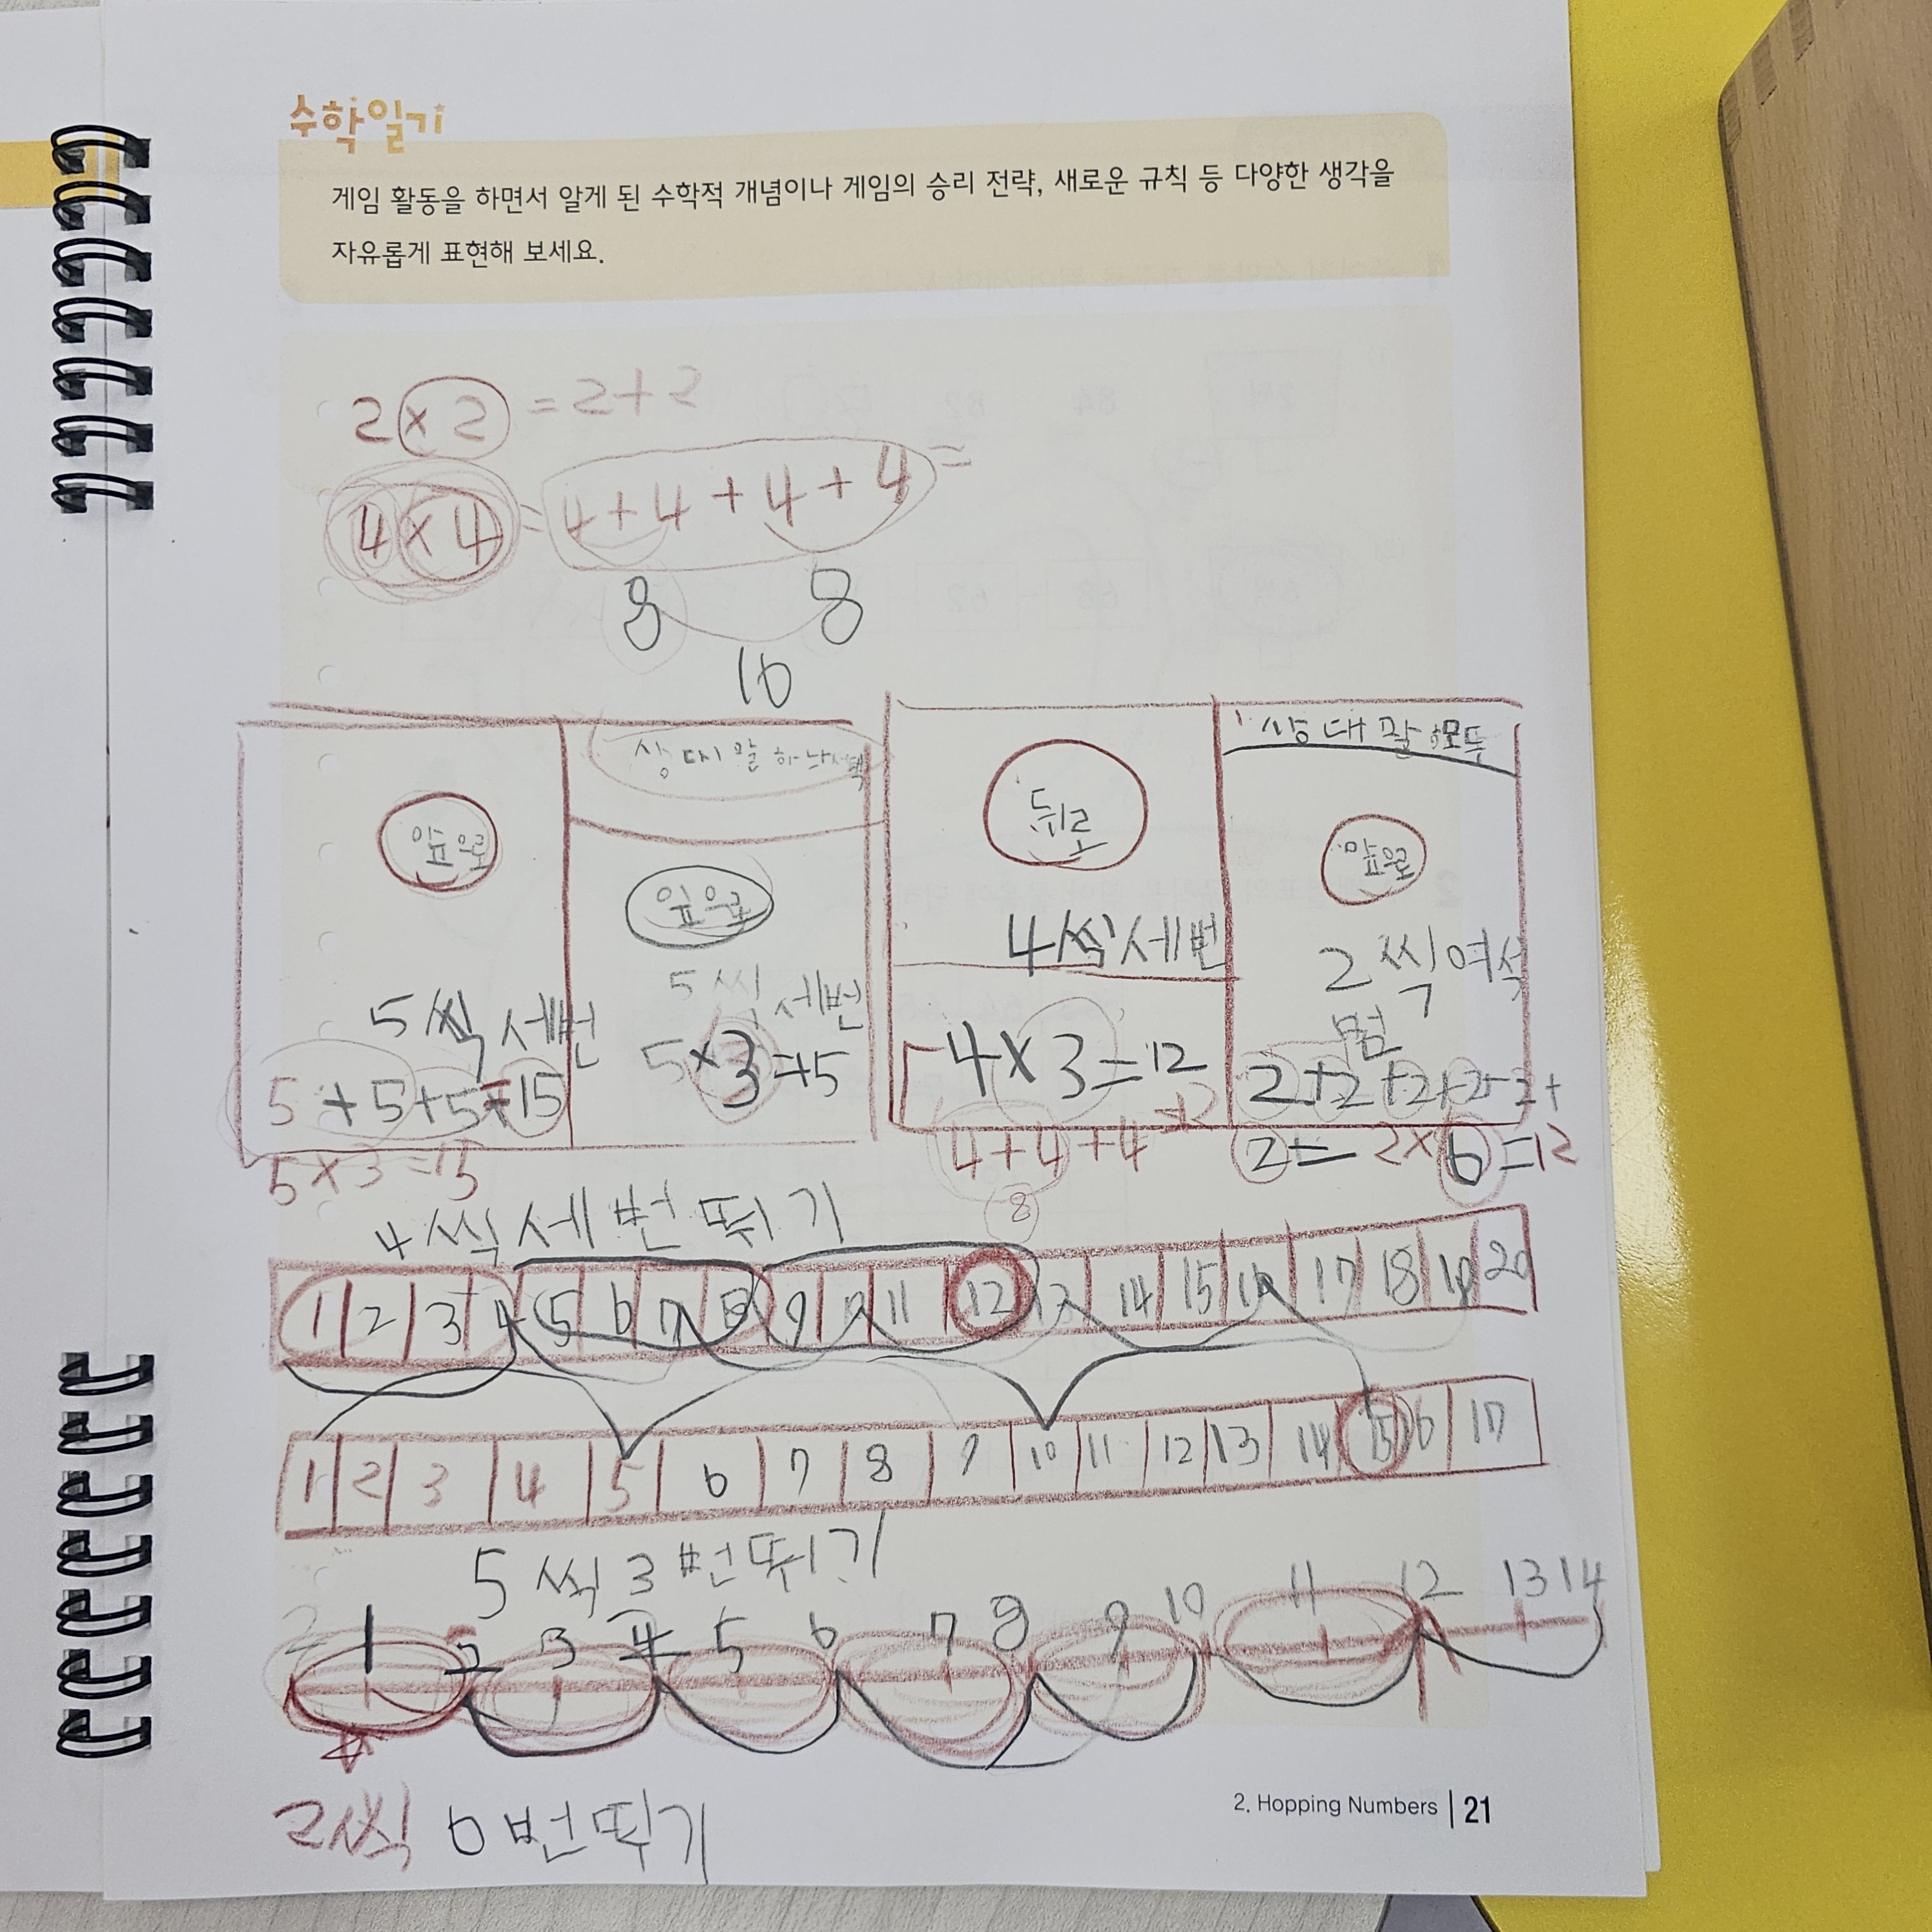 수학일기
게임 활동을 하면서 알게 된 수학적 개념이나 게임의 승리 전략, 새로운 규칙 등 다양한 생각을
자유롭게 표현해 보세요.
2×2=2+2
4×4=4+4+4+4=
8 8
16
앞으로
5씩 세번
5+5+5=15
5×3=15
상대 말 하나선택
앞으로
5씩 세번
5×3=15
뒤로
4씩 세번
4×3=12
4+4+4=12
8
상대 말 모두
앞으로
2씩 여섯
번
2+2+2+2+2+
2=2×6=12
4씩 세번 뛰기
1 2 3 4 5 6 7 8 9 10 11 12 13 14 15 16 17 18 19 20
1 2 3 4 5 6 7 8 9 10 11 12 13 14 15 16 17
5씩 3번 뛰기
1 2 3 4 5 6 7 8 9 10 11 12 13 14
2씩 6번 뛰기
2. Hopping Numbers | 21